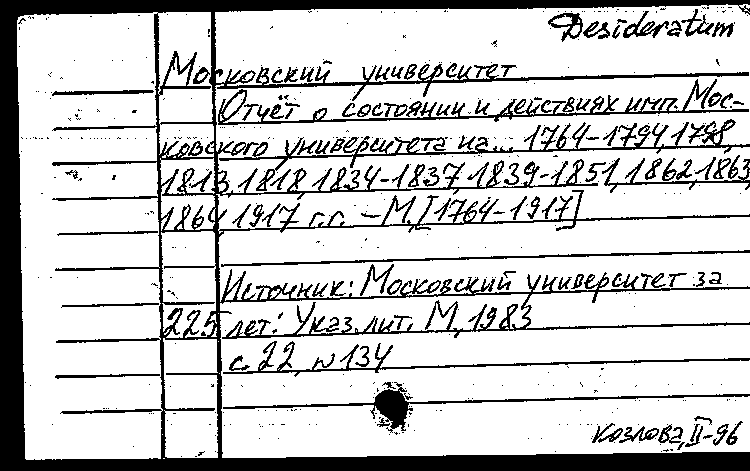 Desideratum
Московский университет
Отчёт о состоянии и действиях имп. Мос-
ковского университета на... 1764-1794, 1798,
1813, 1818, 1834-1837, 1839-1851, 1862, 1863
1864, 1917 г.г. - М, [1764-1917]
Источник: Московский университет за
225 лет: Указ. лит. М, 1983
с. 22, №134
Козлова, II-96